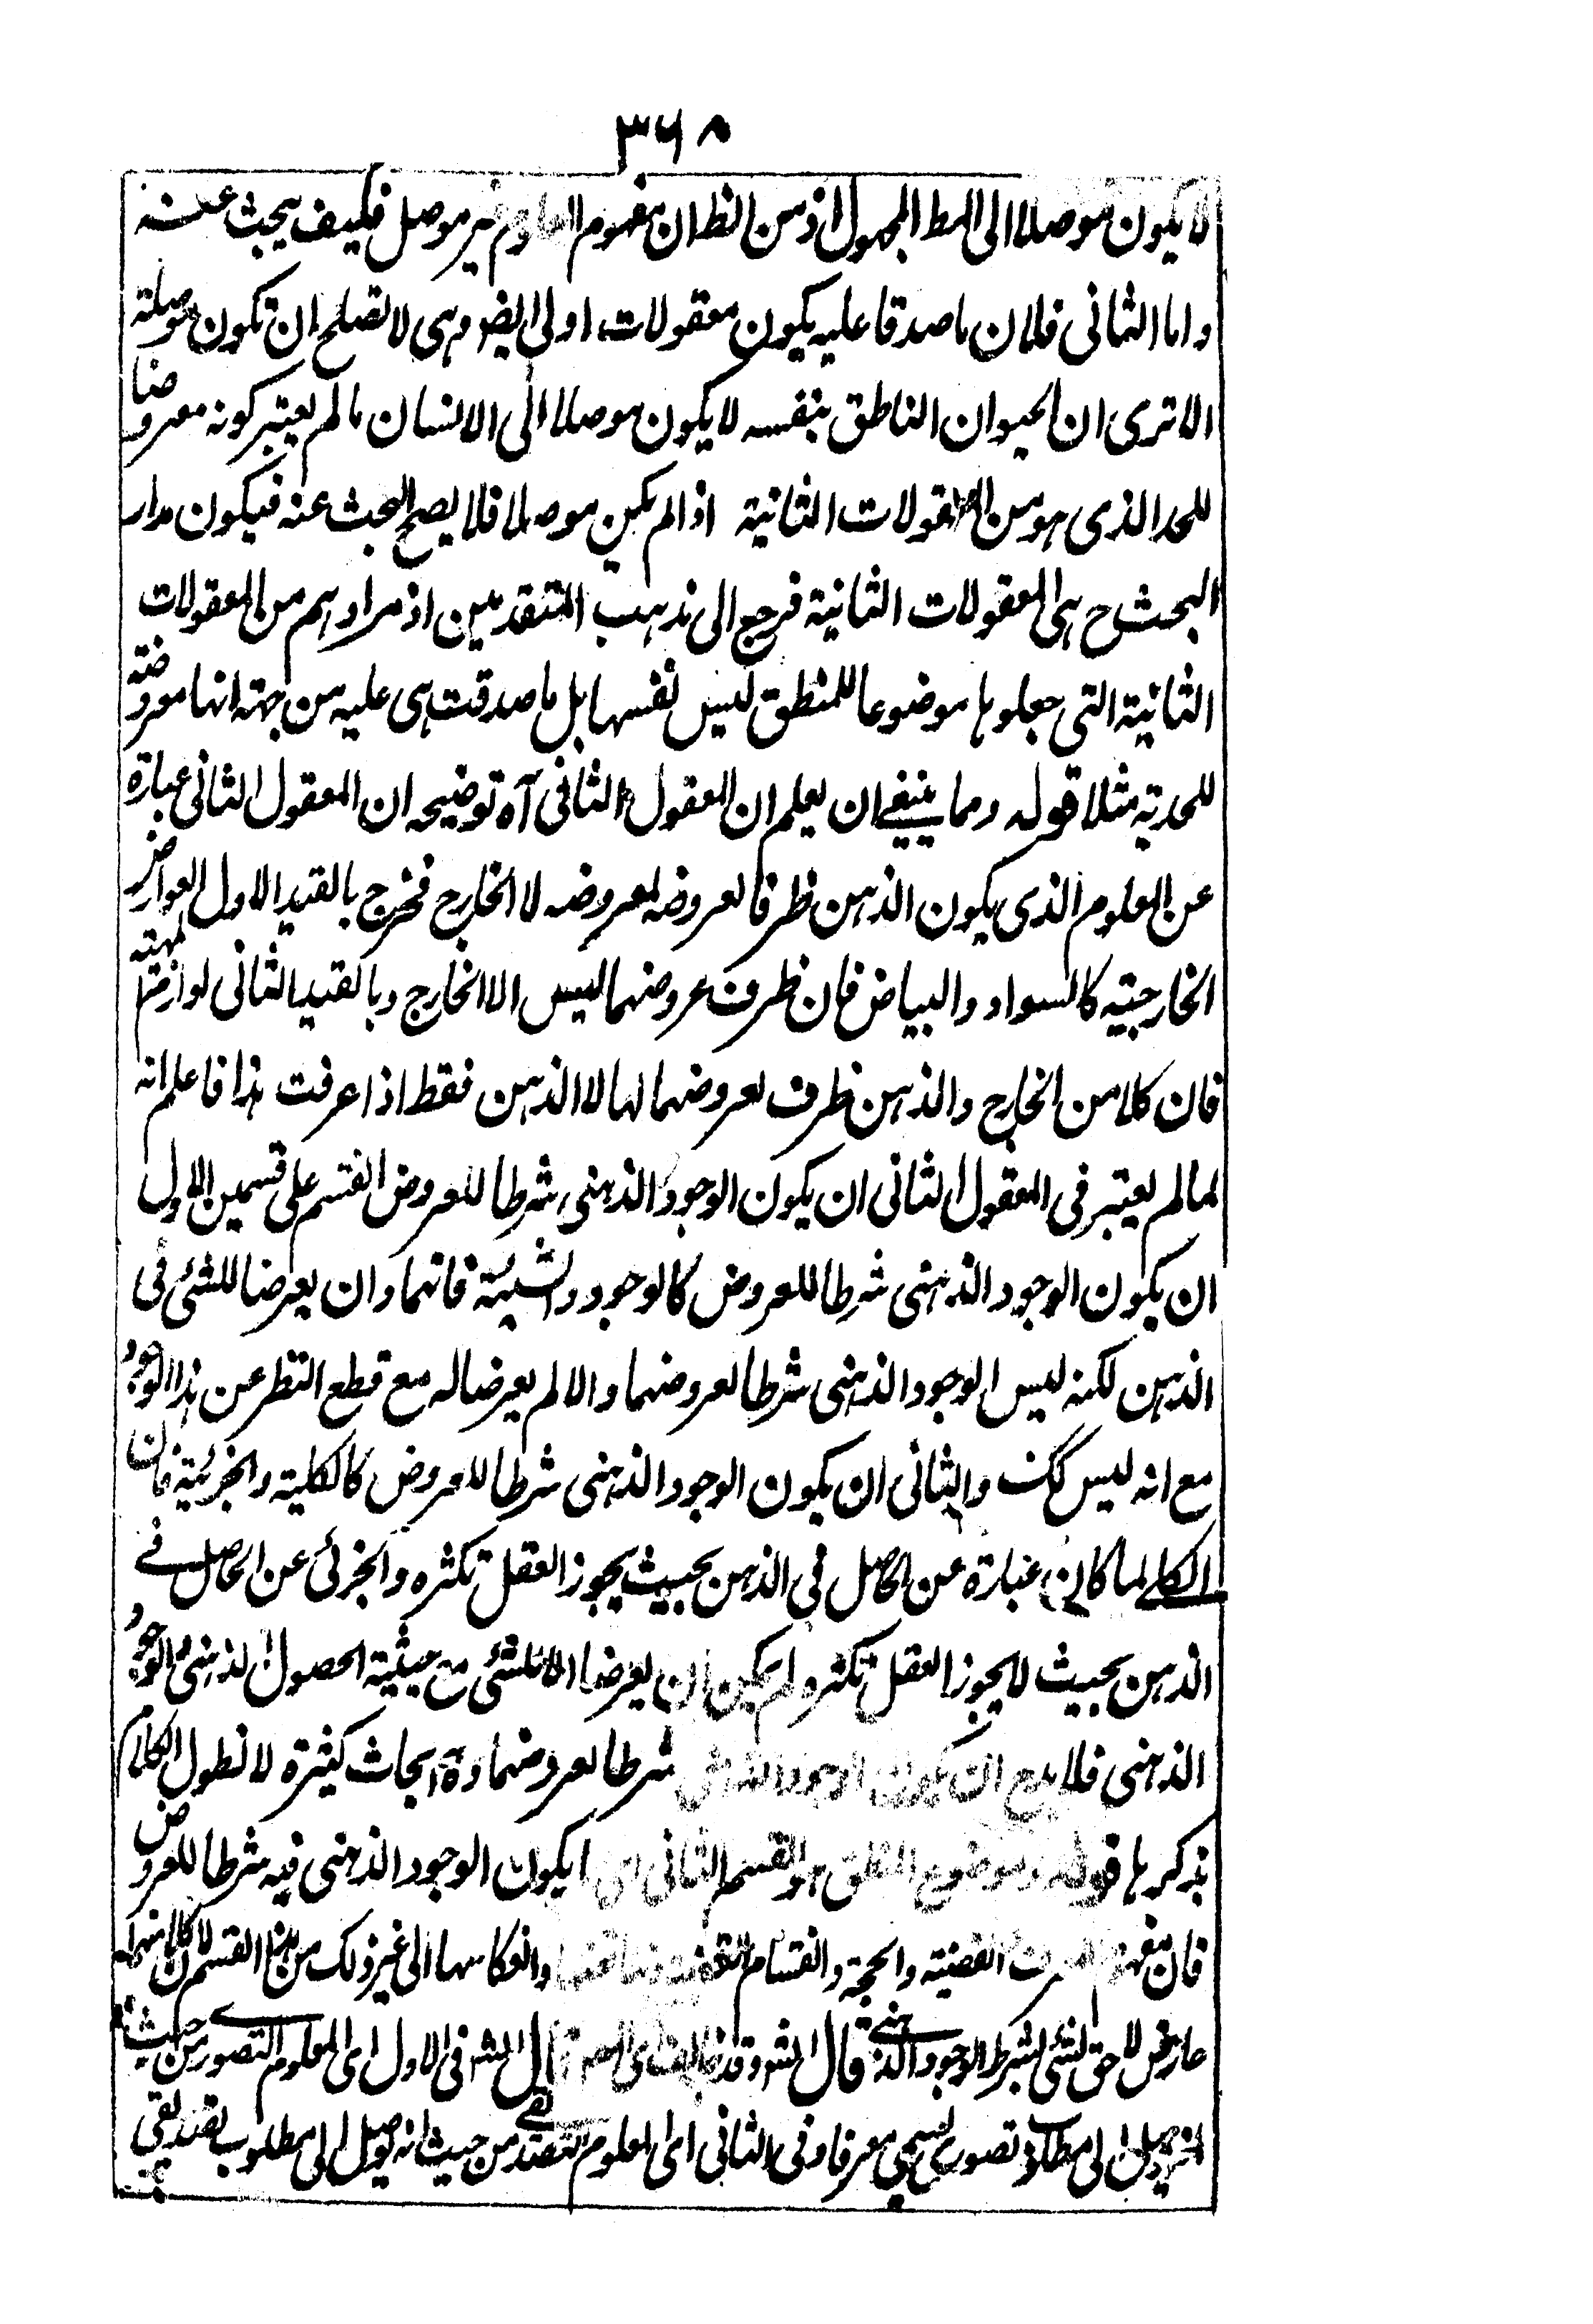 ٣٦٨
لا يكون موصلا الى المط المجهول اذ من الظ ان مفهوم المعلوم غير موصل فكيف يبحث عنه
واما الثانى فلان ما صدقا عليه يكون معقولات اولى ايضا وهى لا تصلح ان تكون موصلة
الا ترى ان الحيوان الناطق بنفسه لا يكون موصلا الى الانسان ما لم يعتبر كونه معروضا
للحد الذى هو من المعقولات الثانية اذا لم يكن موصلا فلا يصح البحث عنه فيكون مدار
البحث ح هى المعقولات الثانية فرجع الى مذهب المتقدمين اذ مرادهم من المعقولات
الثانية التى جعلوها موضوعا للمنطق ليس نفسها بل ما صدقت هى عليه من جهة انها معروضة
للحدية مثلا قوله ومما ينبغى ان يعلم ان المعقول الثانى آه توضيحه ان المعقول الثانى عبارة
عن المعلوم الذى يكون الذهن ظرفا لعروضه لمعروضه لا الخارج فخرج بالقيد الاول العوارض
الخارجية كالسواد والبياض فان ظرف عروضهما ليس الا الخارج وبالقيد الثانى لوازم المهية
فان كلا من الخارج والذهن ظرف لعروضهما لها لا الذهن فقط اذا عرفت هذا فاعلم انه
لما لم يعتبر فى المعقول الثانى ان يكون الوجود الذهنى شرطا للعروض انقسم على قسمين الاول
ان يكون الوجود الذهنى شرطا للعروض كالوجود والشيئية فانهما وان يعرضا للشئ فى
الذهن لكنه ليس الوجود الذهنى شرطا لعروضهما والا لم يعرضا له مع قطع النظر عن هذا الوجود
مع انه ليس كك والثانى ان يكون الوجود الذهنى شرطا للعروض كالكلية والجزئية فان
الكلى لما كان عبارة عن الحاصل فى الذهن بحيث يجوز العقل تكثره والجزئى عن الحاصل فى
الذهن بحيث لا يجوز العقل تكثره لم يمكن ان يعرضا الا للشئ مع حيثية الحصول الذهنى والوجود
الذهنى فلا بد ان يكون الوجود الذهنى شرطا لعروضهما وه ابحاث كثيرة لا نطول الكلام
بذكرها قوله وموضوع المنطق هو القسم الثانى اى ما يكون الوجود الذهنى فيه شرطا للعروض
فان مفهوم المعرف القضية والحجة وانقسام القضية وتناقضها وانعكاسها الى غير ذلك من هذا القسم لان كلا منهما
عارض لاحق لشئ بشرط الوجود الذهنى قال الش وقد قال الش فى الاول اى المعلوم التصورى من حيث
انه يوصل الى مطلوب تصورى يسمى معرفا وفى الثانى اى المعلوم التصديقى من حيث انه يوصل الى مطلوب تصديقى